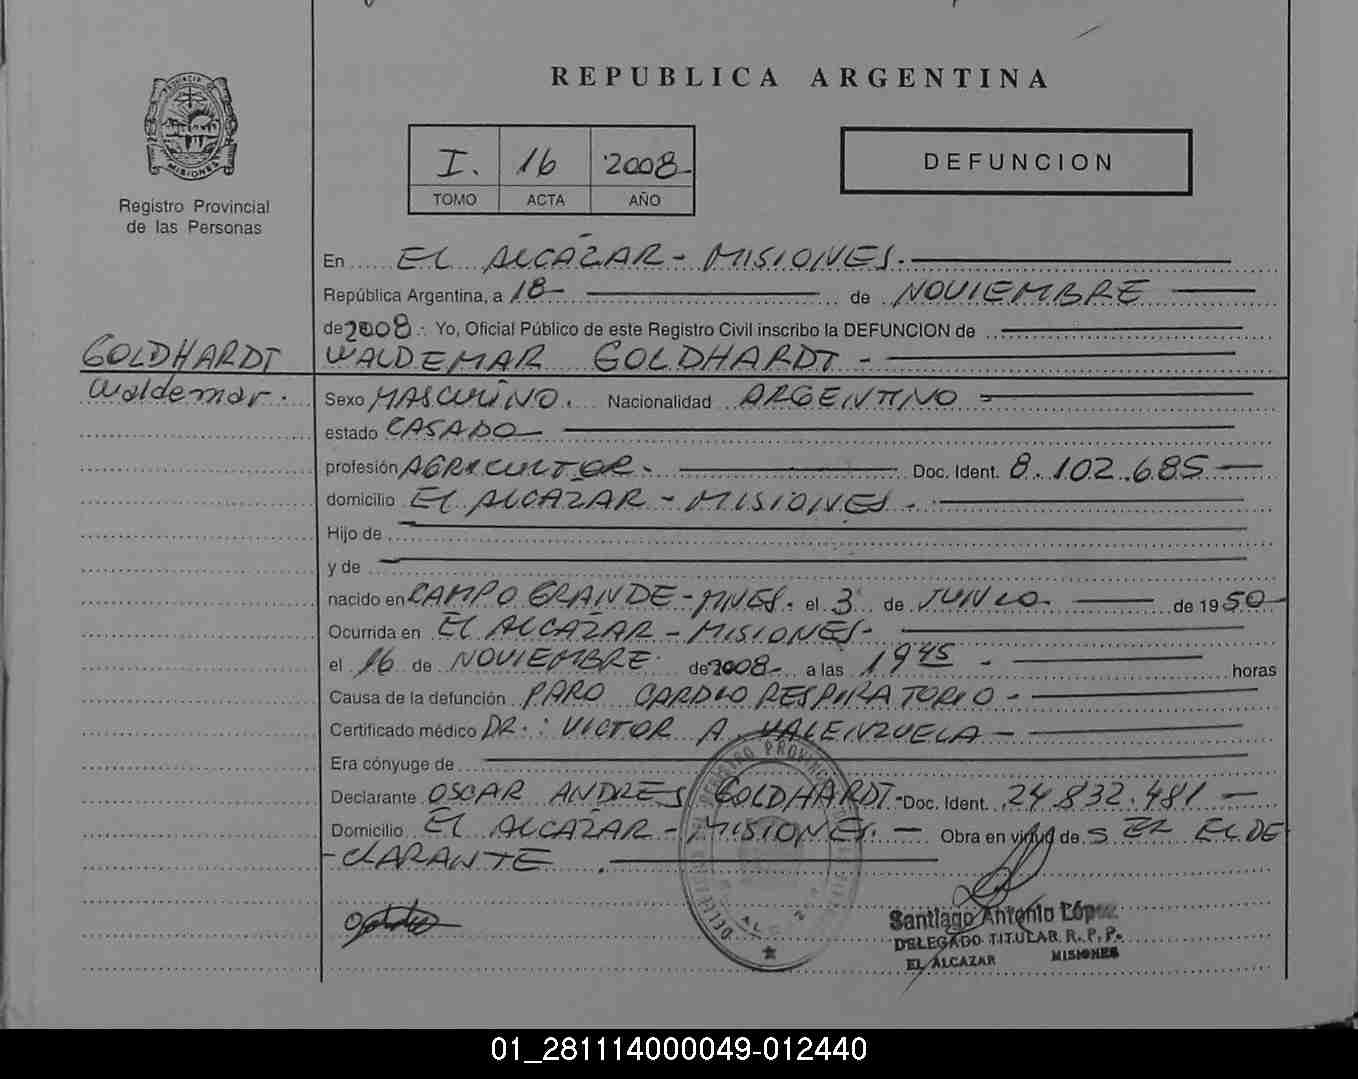 REPUBLICA ARGENTINA
PROVINCIA DE
MISIONES
Registro Provincial
de las Personas
I. 16 2008
TOMO ACTA AÑO
DEFUNCION
En EL ALCAZAR - MISIONES.
República Argentina, a 18 de NOVIEMBRE
de 2008. Yo, Oficial Público de este Registro Civil inscribo la DEFUNCION de
GOLDHARDT WALDEMAR GOLDHARDT -
Waldemar. Sexo MASCULINO. Nacionalidad ARGENTINO
estado CASADO
profesión AGRICULTOR. Doc. Ident. 8.102.685
domicilio EL ALCAZAR - MISIONES.
Hijo de
y de
nacido en CAMPO GRANDE - MNES. el 3 de JUNIO. de 1950
Ocurrida en EL ALCAZAR - MISIONES-
el 16 de NOVIEMBRE. de 2008 a las 19 45 - horas
Causa de la defunción PARO CARDIO RESPIRATORIO -
Certificado médico DR.: VICTOR A. VALENZUELA -
Era cónyuge de
Declarante OSCAR ANDRES GOLDHARDT - Doc. Ident. 24.832.481 -
Domicilio EL ALCAZAR - MISIONES. - Obra en virtud de SER EL DE
-CLARANTE.
REGISTRO PROVINCIAL
Santiago Antonio López
DELEGADO TITULAR R. P. P.
EL ALCAZAR MISIONES
01_281114000049-012440